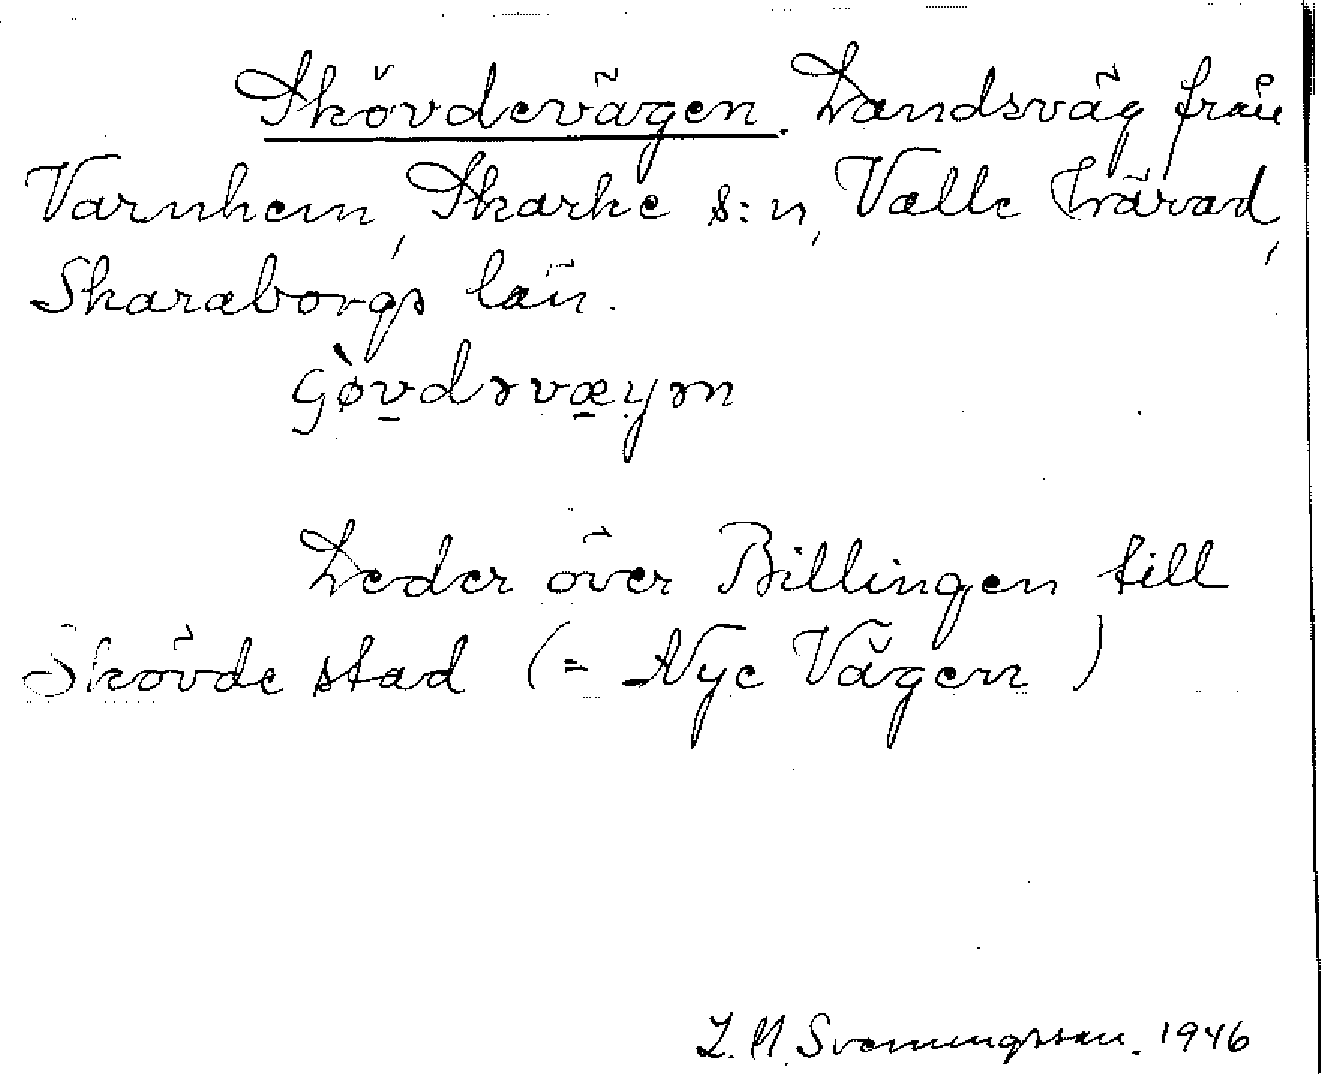 Skövdevägen. Landsväg från
Varnhem, Skarke s:n, Valle härad,
Skaraborgs län.
çòv̠dəvæ̠yən
Leder över Billingen till
Skövde stad (= Nye Vägen)
L. M. Svenningsson. 1946